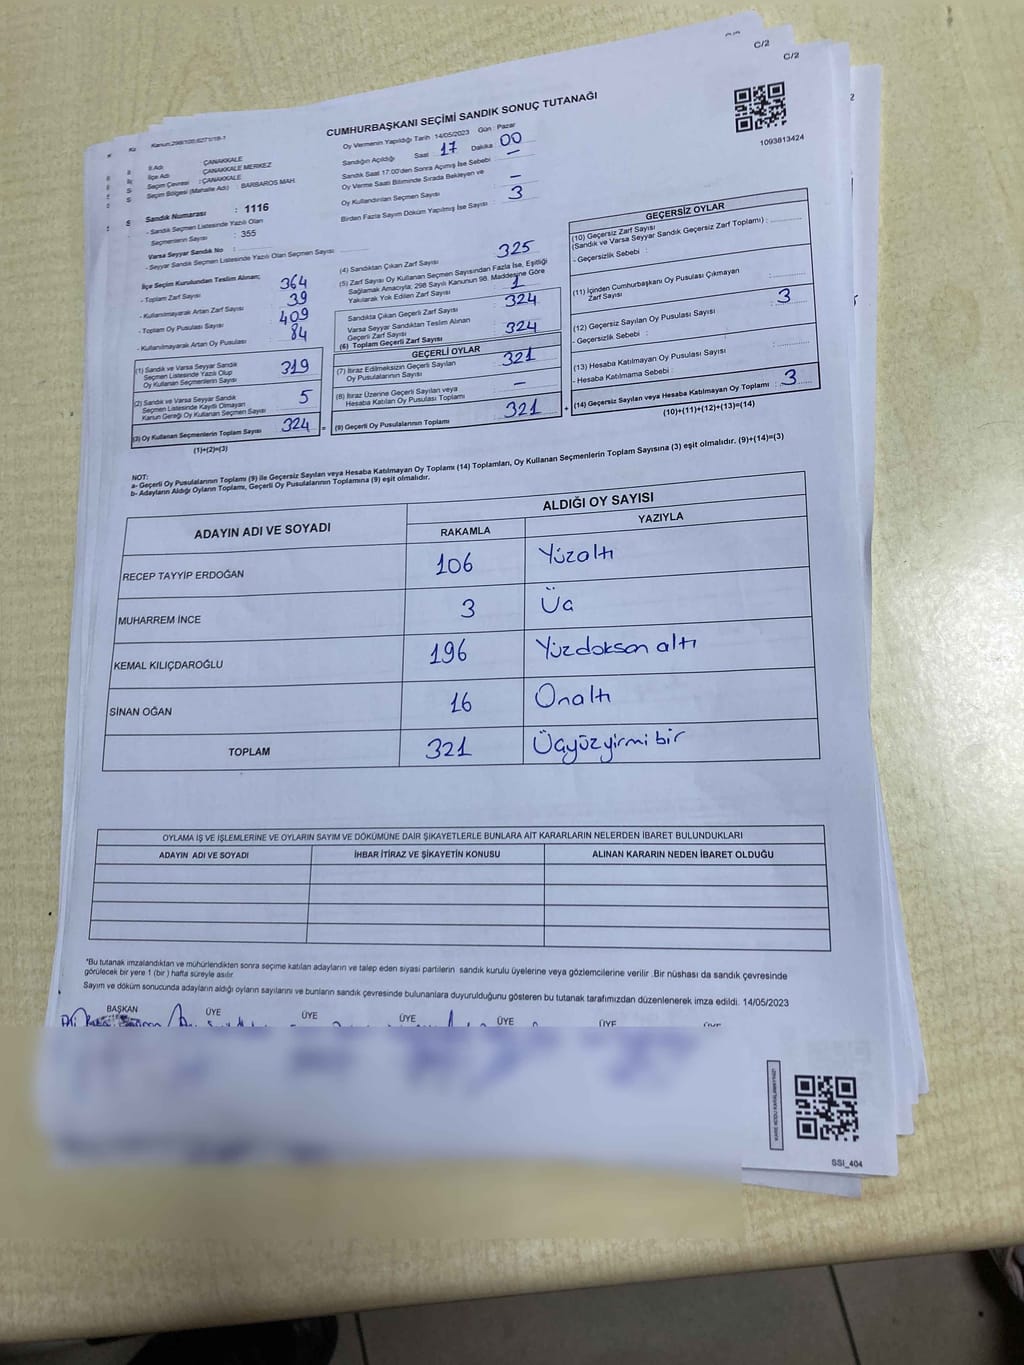 C/2
C/2
CUMHURBAŞKANI SEÇİMİ SANDIK SONUÇ TUTANAĞI
1093813424
İl Adı : ÇANAKKALE
İlçe Adı : ÇANAKKALE MERKEZ
Seçim Çevresi : ÇANAKKALE
Seçim Bölgesi (Mahalle Adı) : BARBAROS MAH.
Sandık Numarası : 1116
- Sandık Seçmen Listesinde Yazılı Olan
Seçmenlerin Sayısı : 355
Varsa Seyyar Sandık No :
- Seyyar Sandık Seçmen Listesinde Yazılı Olan Seçmen Sayısı :
Oy Vermenin Yapıldığı Tarih : 14/05/2023 Gün : Pazar
Sandığın Açıldığı Saat 17 Dakika 00
Sandık Saat 17:00'den Sonra Açılmış İse Sebebi : —
Oy Verme Saati Bitiminde Sırada Bekleyen ve
Oy Kullandırılan Seçmen Sayısı : —
Birden Fazla Sayım Döküm Yapılmış İse Sayısı : 3
İlçe Seçim Kurulundan Teslim Alınan;
- Toplam Zarf Sayısı 364
- Kullanılmayarak Artan Zarf Sayısı 39
- Toplam Oy Pusulası Sayısı 409
- Kullanılmayarak Artan Oy Pusulası 84
(1) Sandık ve Varsa Seyyar Sandık
Seçmen Listesinde Yazılı Olup
Oy Kullanan Seçmenlerin Sayısı 319
(2) Sandık ve Varsa Seyyar Sandık
Seçmen Listesinde Kayıtlı Olmayan
Kanun Gereği Oy Kullanan Seçmen Sayısı 5
(3) Oy Kullanan Seçmenlerin Toplam Sayısı 324
(1)+(2)=(3)
(4) Sandıktan Çıkan Zarf Sayısı 325
(5) Zarf Sayısı Oy Kullanan Seçmen Sayısından Fazla İse, Eşitliği
Sağlamak Amacıyla; 298 Sayılı Kanunun 98. Maddesine Göre
Yakılarak Yok Edilen Zarf Sayısı : 1
Sandıkta Çıkan Geçerli Zarf Sayısı 324
Varsa Seyyar Sandıktan Teslim Alınan
Geçerli Zarf Sayısı
(6) Toplam Geçerli Zarf Sayısı 324
GEÇERLİ OYLAR
(7) İtiraz Edilmeksizin Geçerli Sayılan
Oy Pusulalarının Sayısı 321
(8) İtiraz Üzerine Geçerli Sayılan veya
Hesaba Katılan Oy Pusulası Toplamı —
(9) Geçerli Oy Pusulalarının Toplamı 321
GEÇERSİZ OYLAR
(10) Geçersiz Zarf Sayısı
(Sandık ve Varsa Seyyar Sandık Geçersiz Zarf Toplamı) :
- Geçersizlik Sebebi :
(11) İçinden Cumhurbaşkanı Oy Pusulası Çıkmayan
Zarf Sayısı :
(12) Geçersiz Sayılan Oy Pusulası Sayısı : 3
- Geçersizlik Sebebi :
(13) Hesaba Katılmayan Oy Pusulası Sayısı :
- Hesaba Katılmama Sebebi :
(14) Geçersiz Sayılan veya Hesaba Katılmayan Oy Toplamı : 3
(10)+(11)+(12)+(13)=(14)
NOT:
a- Geçerli Oy Pusulalarının Toplamı (9) ile Geçersiz Sayılan veya Hesaba Katılmayan Oy Toplamı (14) Toplamları, Oy Kullanan Seçmenlerin Toplam Sayısına (3) eşit olmalıdır. (9)+(14)=(3)
b- Adayların Aldığı Oyların Toplamı, Geçerli Oy Pusulalarının Toplamına (9) eşit olmalıdır.
ADAYIN ADI VE SOYADI ALDIĞI OY SAYISI
RAKAMLA YAZIYLA
RECEP TAYYİP ERDOĞAN 106 Yüzaltı
MUHARREM İNCE 3 Üç
KEMAL KILIÇDAROĞLU 196 Yüzdoksan altı
SİNAN OĞAN 16 Onaltı
TOPLAM 321 Üçyüzyirmi bir
OYLAMA İŞ VE İŞLEMLERİNE VE OYLARIN SAYIM VE DÖKÜMÜNE DAİR ŞİKAYETLERLE BUNLARA AİT KARARLARIN NELERDEN İBARET BULUNDUKLARI
ADAYIN ADI VE SOYADI İHBAR İTİRAZ VE ŞİKAYETİN KONUSU ALINAN KARARIN NEDEN İBARET OLDUĞU
*Bu tutanak imzalandıktan ve mühürlendikten sonra seçime katılan adayların ve talep eden siyasi partilerin sandık kurulu üyelerine veya gözlemcilerine verilir .Bir nüshası da sandık çevresinde
görülecek bir yere 1 (bir ) hafta süreyle asılır.
Sayım ve döküm sonucunda adayların aldığı oyların sayılarını ve bunların sandık çevresinde bulunanlara duyurulduğunu gösteren bu tutanak tarafımızdan düzenlenerek imza edildi. 14/05/2023
BAŞKAN ÜYE ÜYE ÜYE ÜYE ÜYE ÜYE
SSI_404